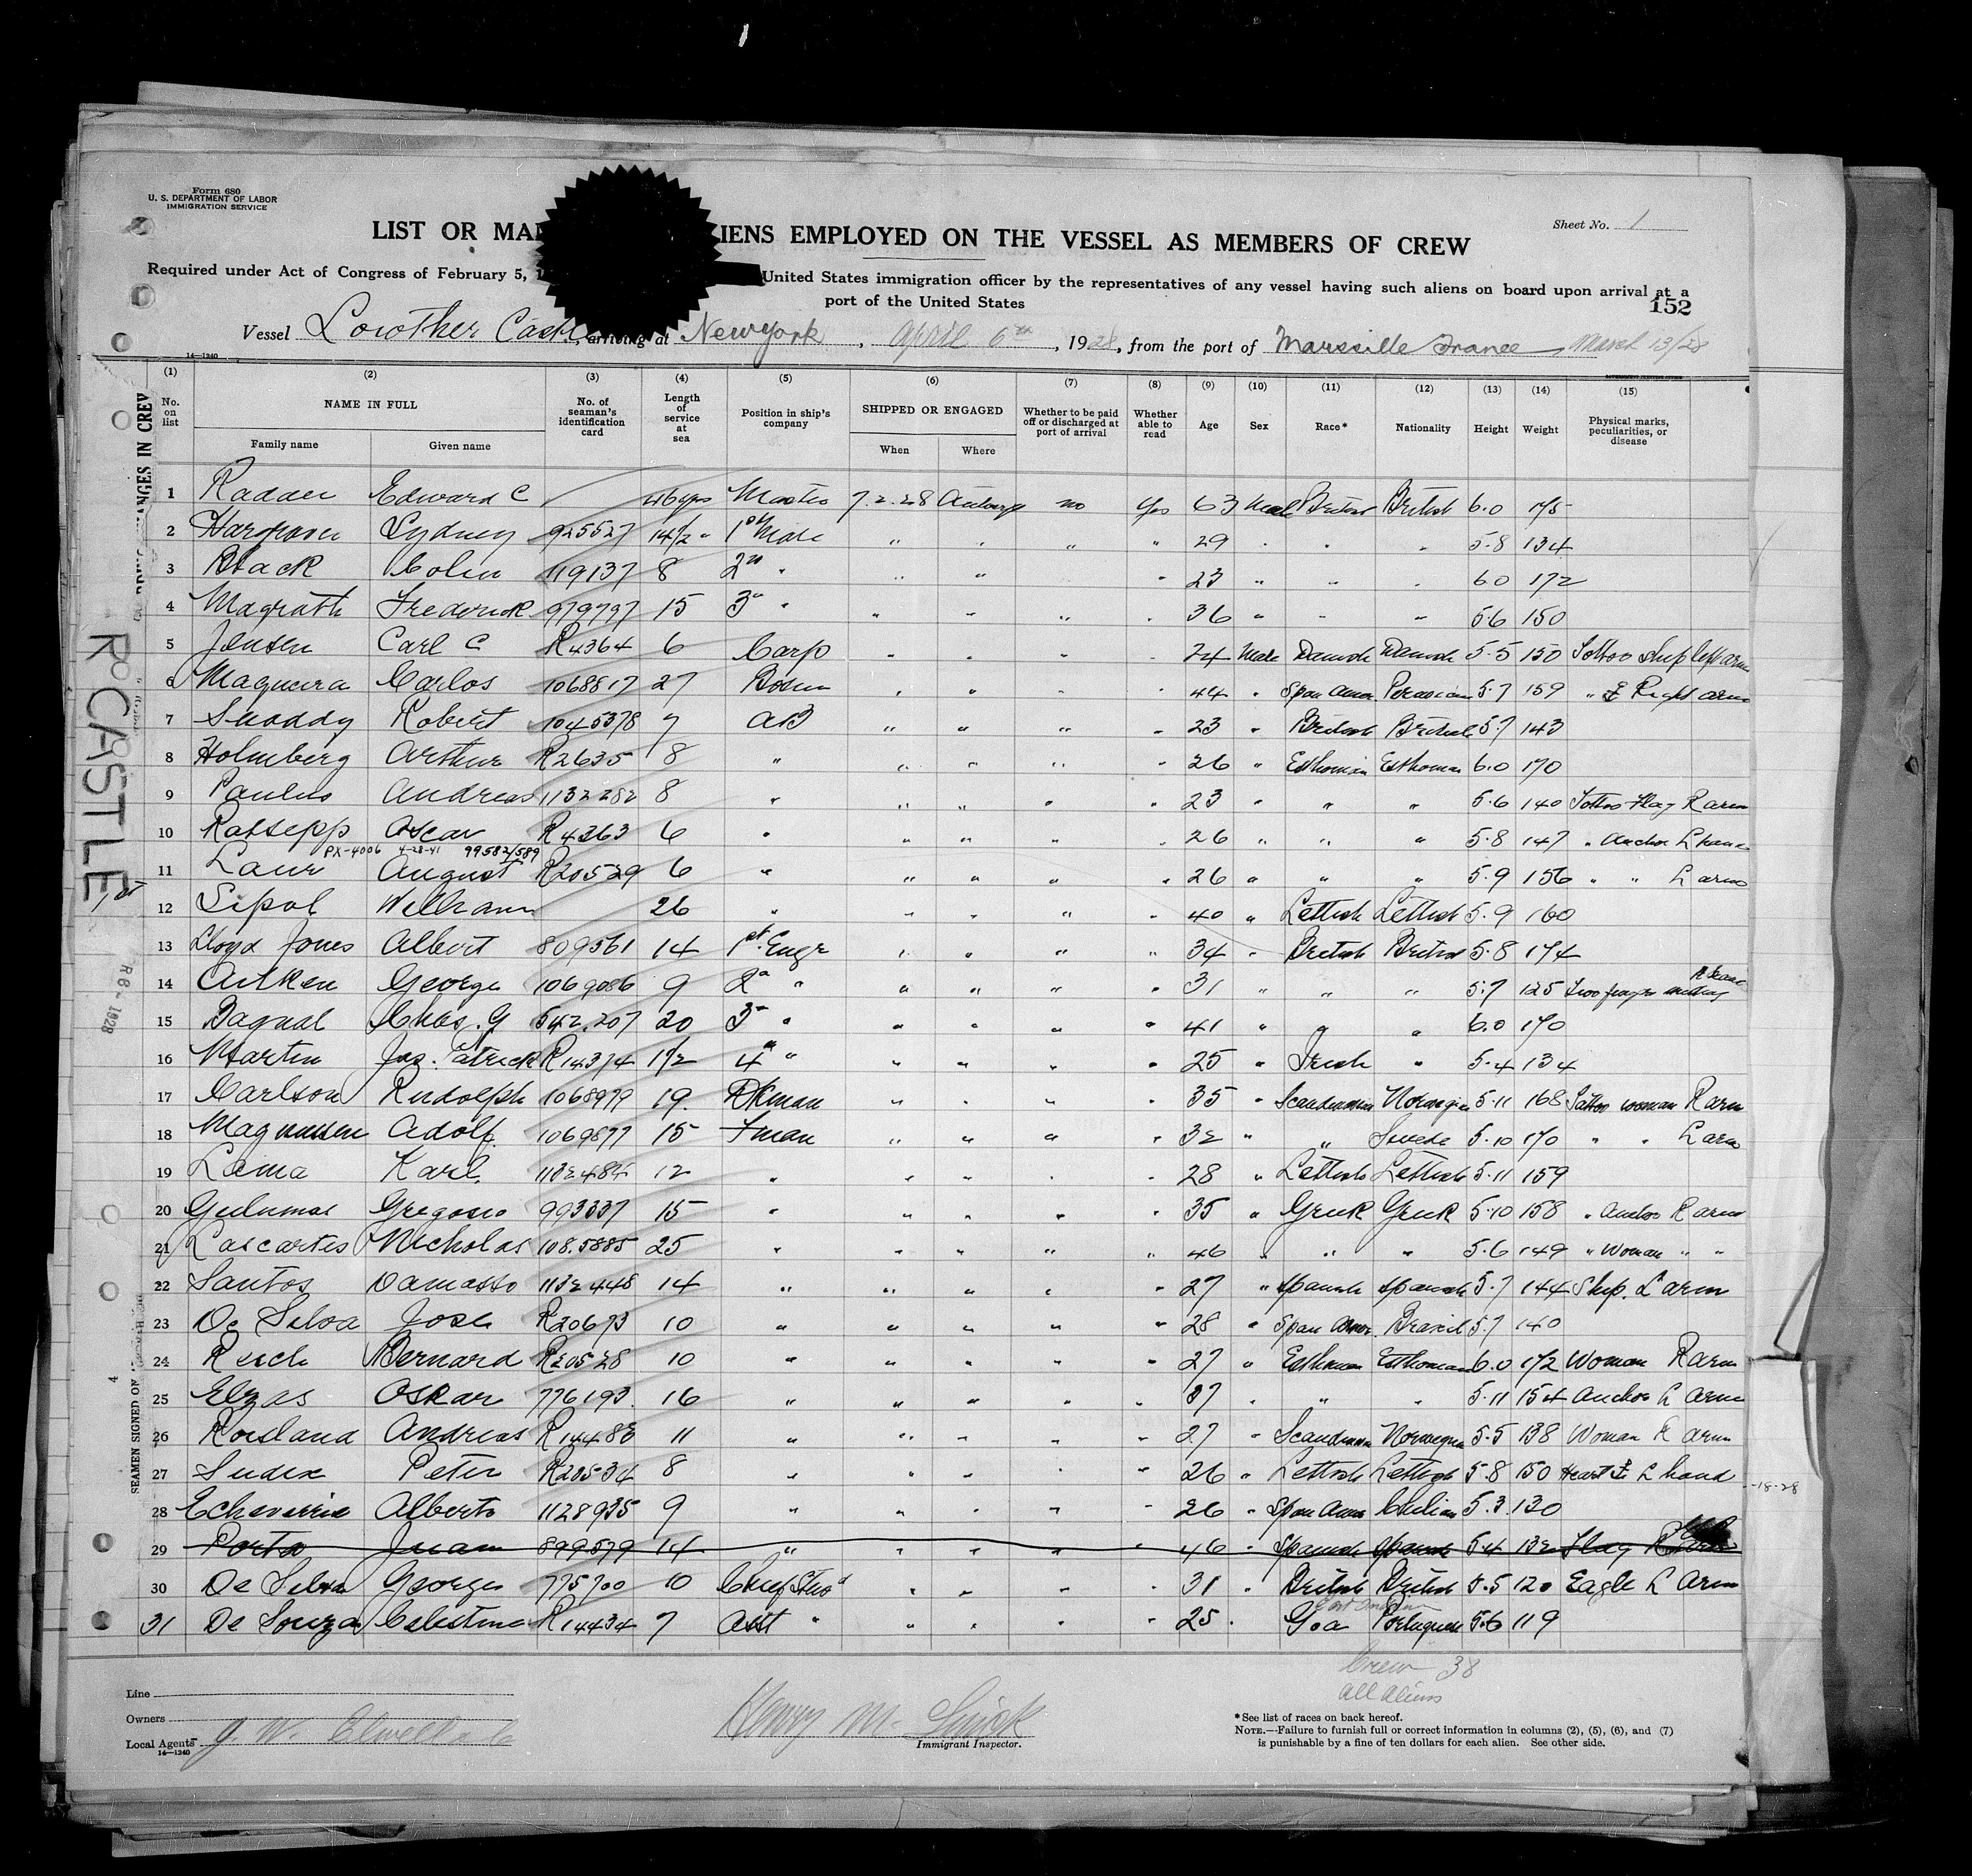 Form 680
U. S. DEPARTMENT OF LABOR
IMMIGRATION SERVICE
Sheet No. 1
LIST OR MA IENS EMPLOYED ON THE VESSEL AS MEMBERS OF CREW
Required under Act of Congress of February 5, 1 United States immigration officer by the representatives of any vessel having such aliens on board upon arrival at a
port of the United States
152
Vessel Lowther Castle, arriving at New York, April 6th, 1928, from the port of Marseille France March 13/28
14-1240
(1) (2) (3) (4) (5) (6) (7) (8) (9) (10) (11) (12) (13) (14) (15)
No. on list NAME IN FULL No. of seaman's identification card Length of service at sea Position in ship's company SHIPPED OR ENGAGED Whether to be paid off or discharged at port of arrival Whether able to read Age Sex Race* Nationality Height Weight Physical marks, peculiarities, or disease
Family name Given name When Where
1 Edward C 46 yrs Master 7.2.28 Antwerp no yes 63 Male British British 6.0 175
2 Sydney 925527 14 1/2 " 1st Mate " " " " 29 " " " 5.8 134
3 Black Colin 119137 8 2nd " " " " 23 " " " 6.0 172
4 Magrath Frederick 979797 15 3rd " " " " " 36 " " " 5.6 150
5 Jensen Carl C R4364 6 Carp " " " " 24 Male Danish Danish 5.5 150 Tattoo ship left arm
6 Carlos 1068817 27 Bosun " " " " 44 " Span Amer. Peruvian 5.7 159 " Right arm
7 Robert 1045378 7 AB " " " " 23 " British British 5.7 143
8 Holmberg Arthur R2635 8 " " " " " 26 " Esthonian Esthonian 6.0 170
9 Paulus Andreas 1132282 8 " " " " " 23 " " " 5.6 140 Tattoo Flag R arm
10 Ratsepp Oscar R4363 6 " " " " " 26 " " " 5.8 147 " Anchor L hand
PX-4006 4-28-41 99582/589
11 Laur August R20529 6 " " " " " 26 " " " 5.9 156 " " L arm
12 Sipol 26 " " " " " 40 " Lettish Lettish 5.9 160
13 Lloyd Jones Albert 809561 14 1st Engr " " " " 34 " British British 5.8 174
14 Aitken George 1069086 9 2nd " " " " " 31 " " " 5.7 125 Two fingers missing R hand
15 Bagnal Chas. G 542.207 20 3rd " " " " " 41 " " " 6.0 170
16 Martin Jas. Patrick R14374 1 1/2 4th " " " " " 25 " Irish " 5.4 134
17 Carlson Rudolph 1068979 19. DKman " " " " 35 " Scandinavian Norwegian 5.11 168 Tattoo woman R arm
18 Magnussen Adolf 1069877 15 Fman " " " " 32 " " Swede 5.10 170 " " L arm
19 Lema Karl 12 " " " " " 28 " Lettish Lettish 5.11 159
20 993337 15 " " " " " 35 " Greek Greek 5.10 158 " Anchor R arm
21 Lascartes Nicholas 108.5885 25 " " " " " 46 " " " 5.6 149 " Woman " "
22 Santos Damasso 1132448 14 " " " " " 27 " Spanish Spanish 5.7 144 Ship. L arm
23 De Silva Jose R20673 10 " " " " " 28 " Span Amer. Brazil 5.7 140
24 Bernard R20528 10 " " " " " 27 " Esthonian Esthonian 6.0 172 Woman R arm
25 Elzas Oskar 776193. 16 " " " " " 37 " " " 5.11 154 Anchor L Arm
26 Andreas 11 " " " " " 27 " Scandinavian Norwegian 5.5 138 Woman R arm
27 Peter R20534 8 " " " " " 26 " Lettish Lettish 5.8 150 Heart L hand
28 Echaverria Alberto 1128935 9 " " " " " 26 " Span Amer Chilian 5.3. 130
29 Porta Juan 899579 14 " " " " " 46 " Spanish Spanish 5.4 132 Flag R arm
30 De Silva George 775700 10 Chief Stwd " " " " 31 " British British 5.5 120 Eagle L Arm
East Indian
31 De Souza Celestine R14434 7 Asst " " " " " 25 " Goa Portuguese 5.6 119
Crew 38
all aliens
Line
Owners
Local Agents J. W. Elwell & Co
14-1240
Henry M.
Immigrant Inspector.
*See list of races on back hereof.
NOTE.—Failure to furnish full or correct information in columns (2), (5), (6), and (7)
is punishable by a fine of ten dollars for each alien. See other side.
R CASTLE
ANGES IN CREW
SEAMEN SIGNED ON
-18-28